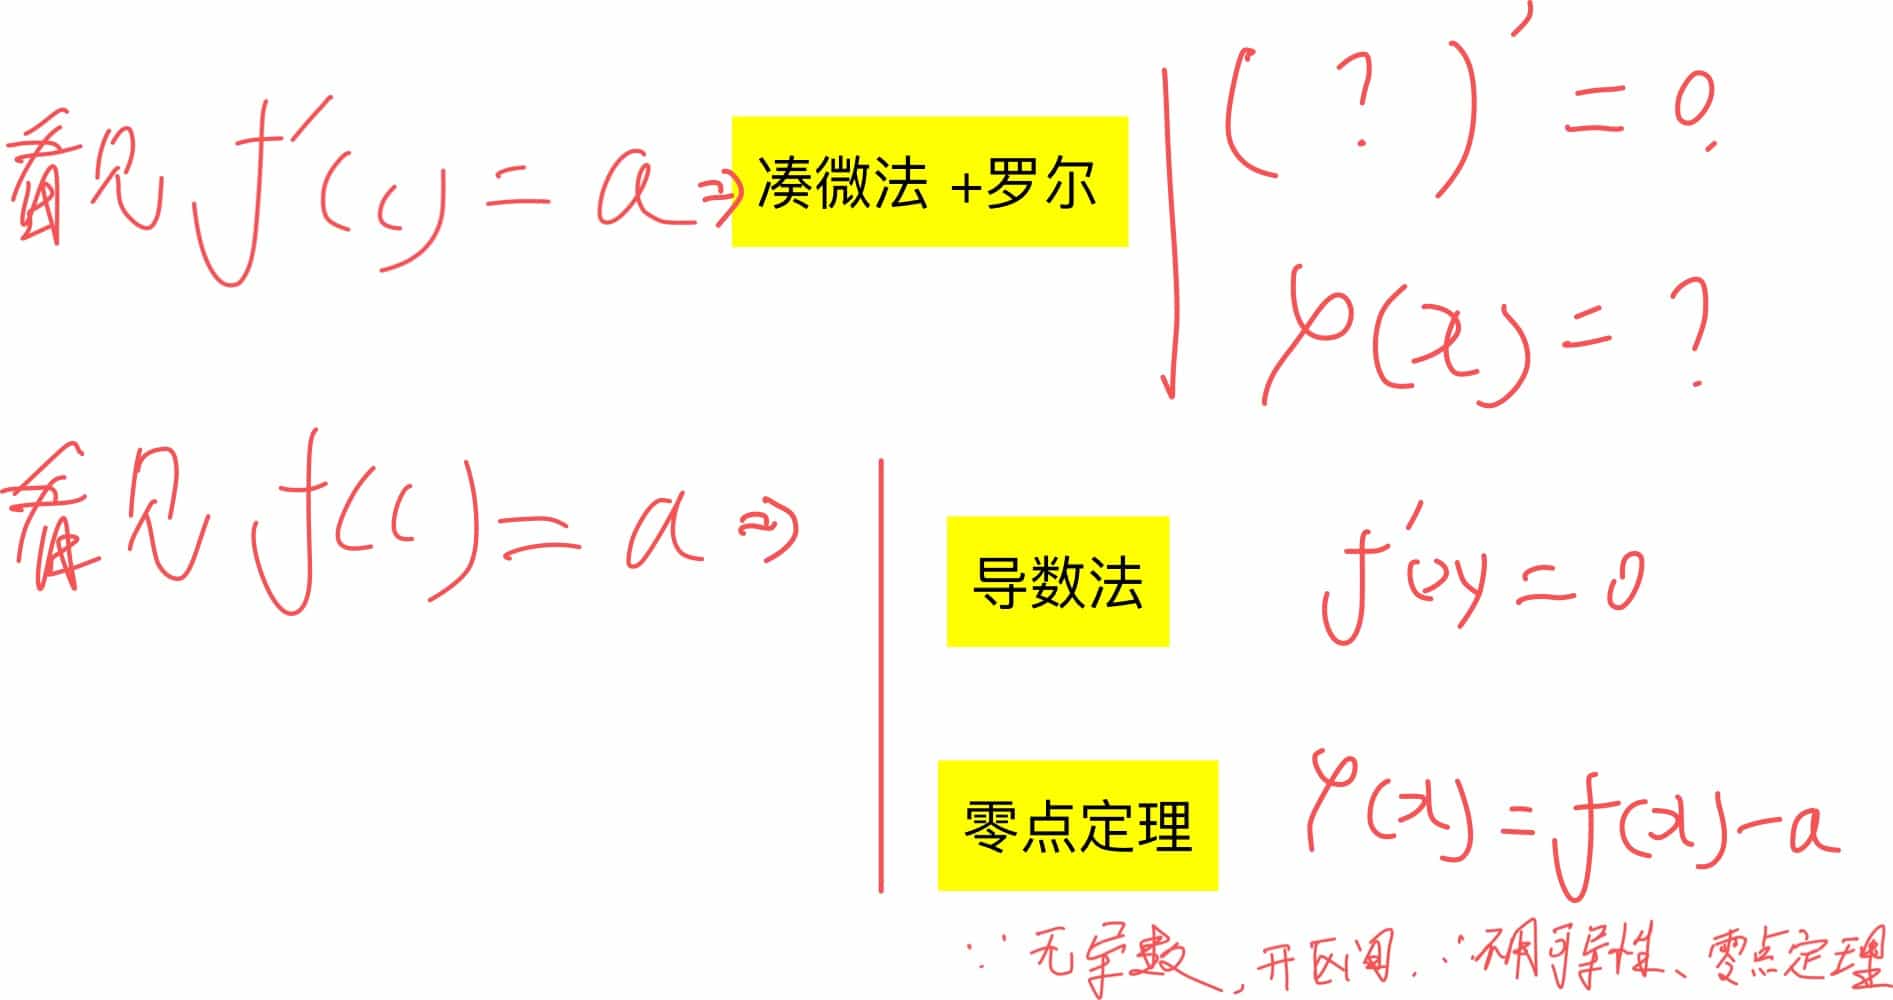 看见 f'(c) = a ⇒ 凑微法 +罗尔 ( ? )' = 0.
φ(x) = ?
看见 f(c) = a ⇒
导数法 f'(x) = 0
零点定理 φ(x) = f(x) - a
∵ 无导数, 开区间. ∴ 不用可导性、零点定理